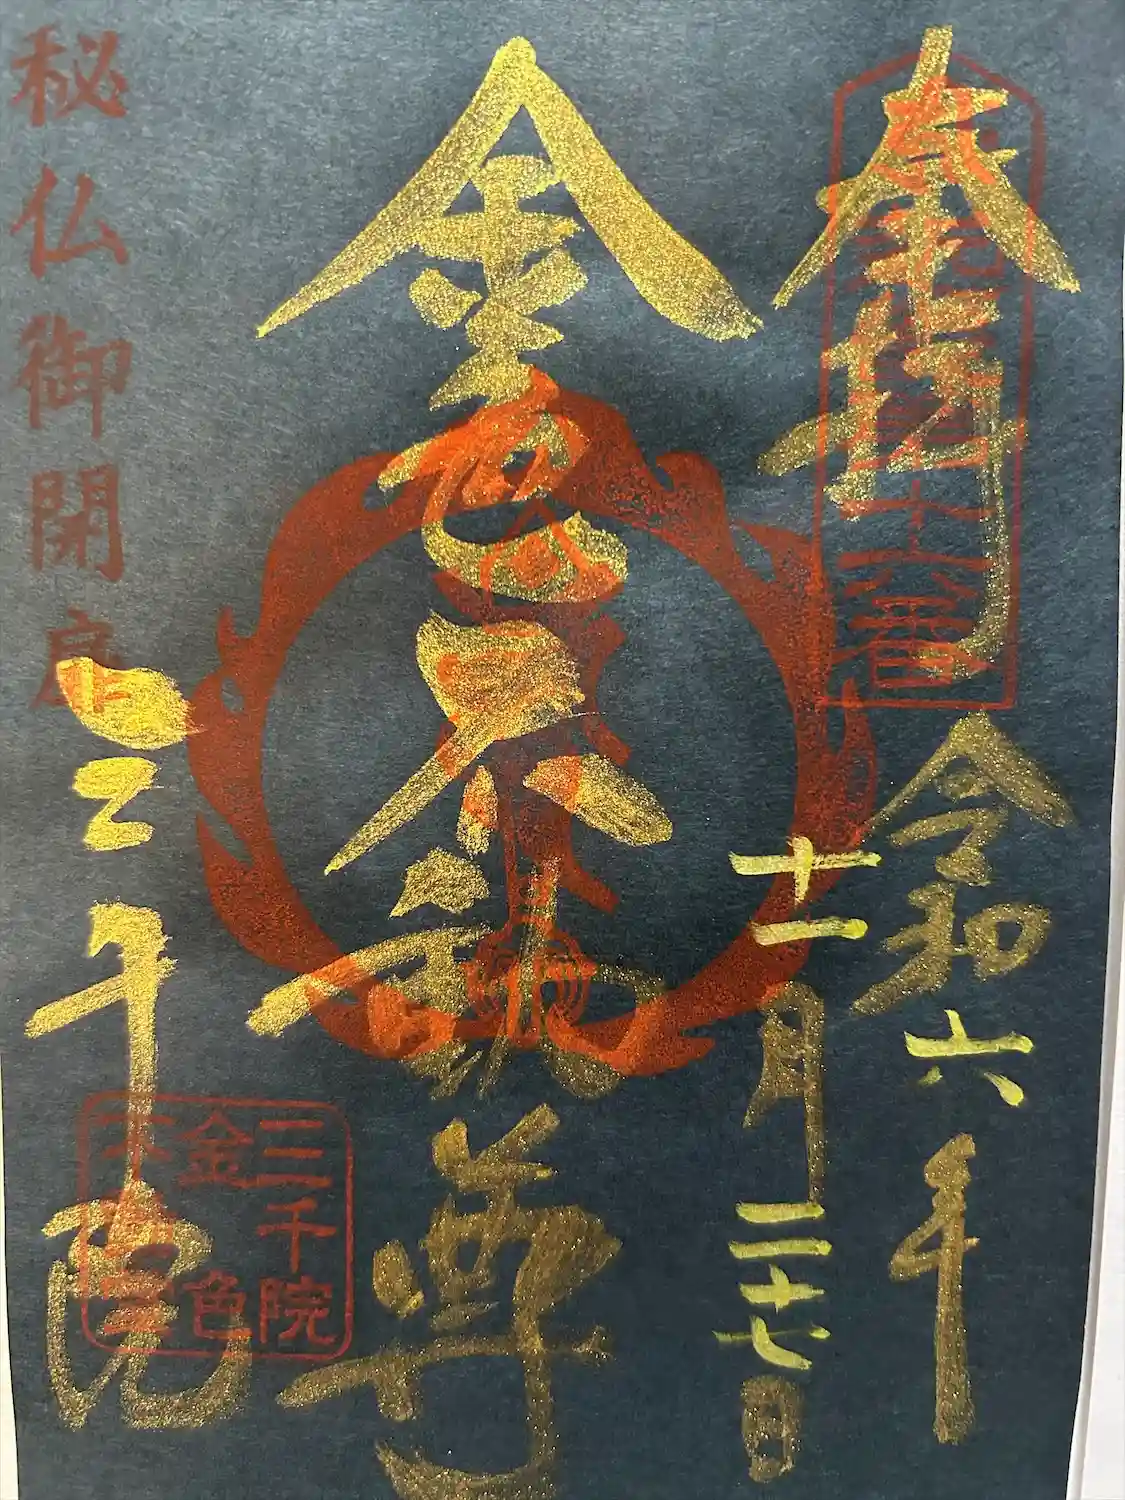 奉拝
十六番
令和六年
十一月二十七日
金色不動尊
秘仏御開扉
三千院
三千院
金色